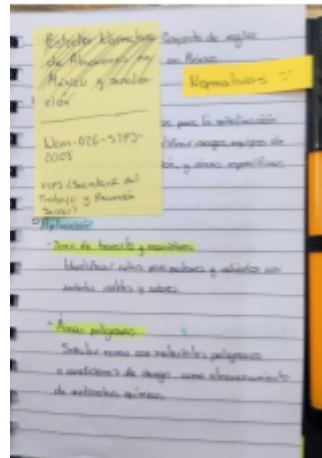 Estudio Normativo
de Almacenes en
México y señaliza-
ción
Nom-026-STPS-
2008
STPS (Secretaría del
Trabajo y Previsión
Social)
Conjunto de reglas
en México
Normativas
para la señalización
riesgos, equipos de
y áreas específicas
Aplicación
- Zona de tránsito y
Identificar rutas para peatones y vehículos con
señales visibles y colores.
- Áreas peligrosas
Señalar zonas con materiales peligrosos
o condiciones de riesgo, como almacenamiento
de materiales químicos.